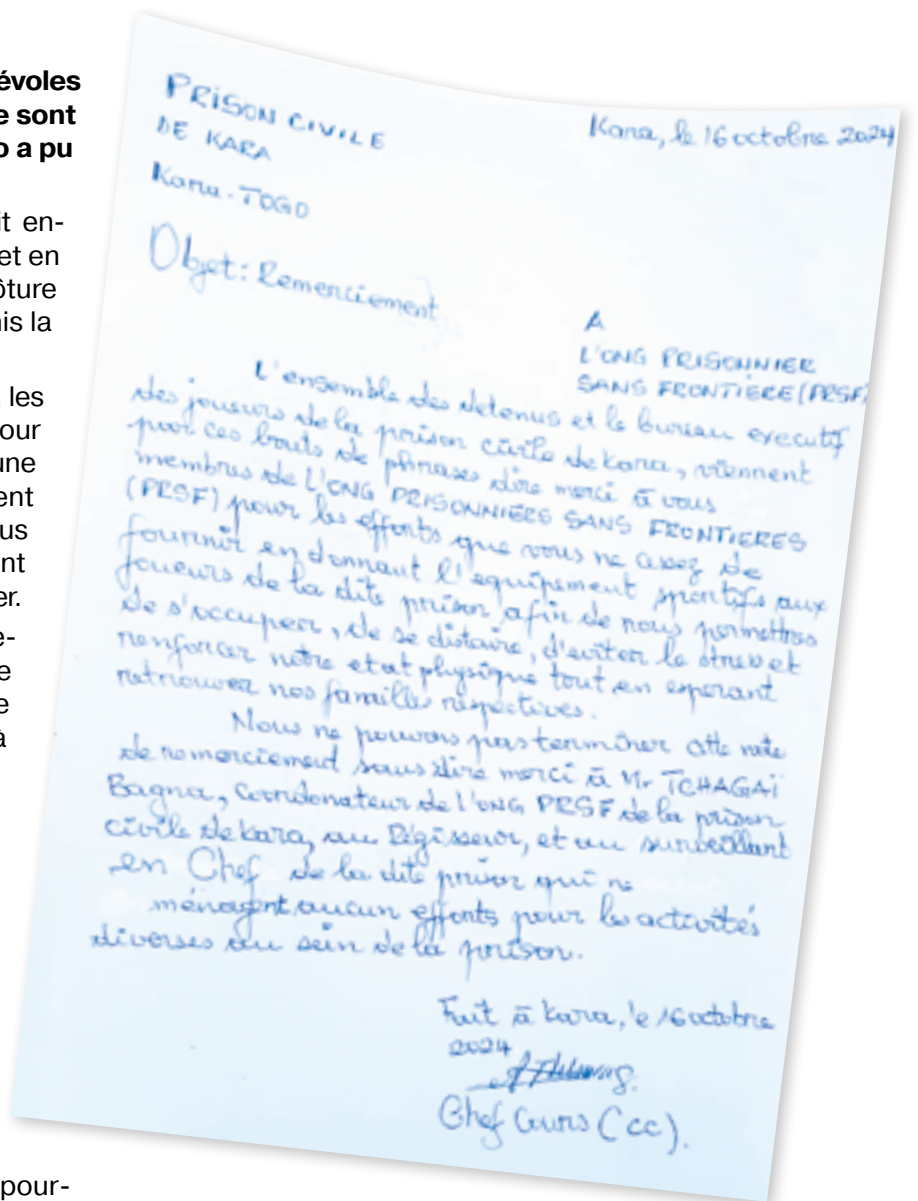 évoles
e sont
o a pu
it en-
et en
ôture
nis la
les
our
une
ent
us
nt
er.
e-
e
e
à
pour-
PRISON CIVILE
DE KARA
Kara-TOGO
Kara, le 16 octobre 2024
Objet: Remerciement
A
L'ONG PRISONNIER
SANS FRONTIÈRE (PRSF)
L'ensemble des detenus et le bureau executif
des joueurs de la prison civile de kara, viennent
par ces bouts de phrases dire merci à vous
membres de L'ONG PRISONNIERS SANS FRONTIERES
(PRSF) pour les efforts que vous ne cessez de
fournir en donnant l'equipement sportifs aux
joueurs de la dite prison afin de nous permettres
de s'occuper, de se distaire, d'eviter le stress et
renforcer notre etat physique tout en esperant
retrouver nos familles respectives.
Nous ne pouvons pas terminer cette note
de remerciement sans dire merci à Mr TCHAGAÏ
Bagna, Coordonateur de l'ONG PRSF de la prison
civile de kara, au Régisseur, et au surveillant
en Chef de la dite prison qui ne
ménagent aucun efforts pour les activités
diverses au sein de la prison.
Fait à kara, le 16 octobre
2024
Chef Cours (CC).